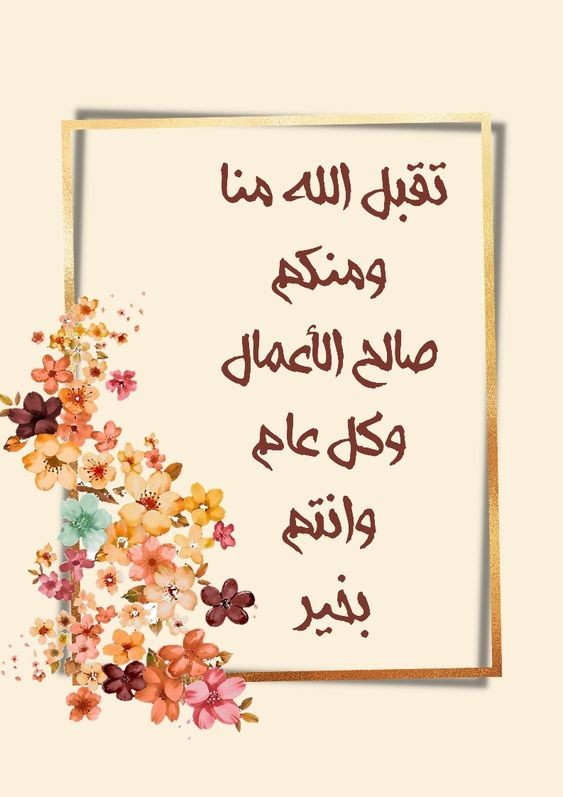 تقبل الله منا
ومنكم
صالح الأعمال
وكل عام
وانتم
بخير